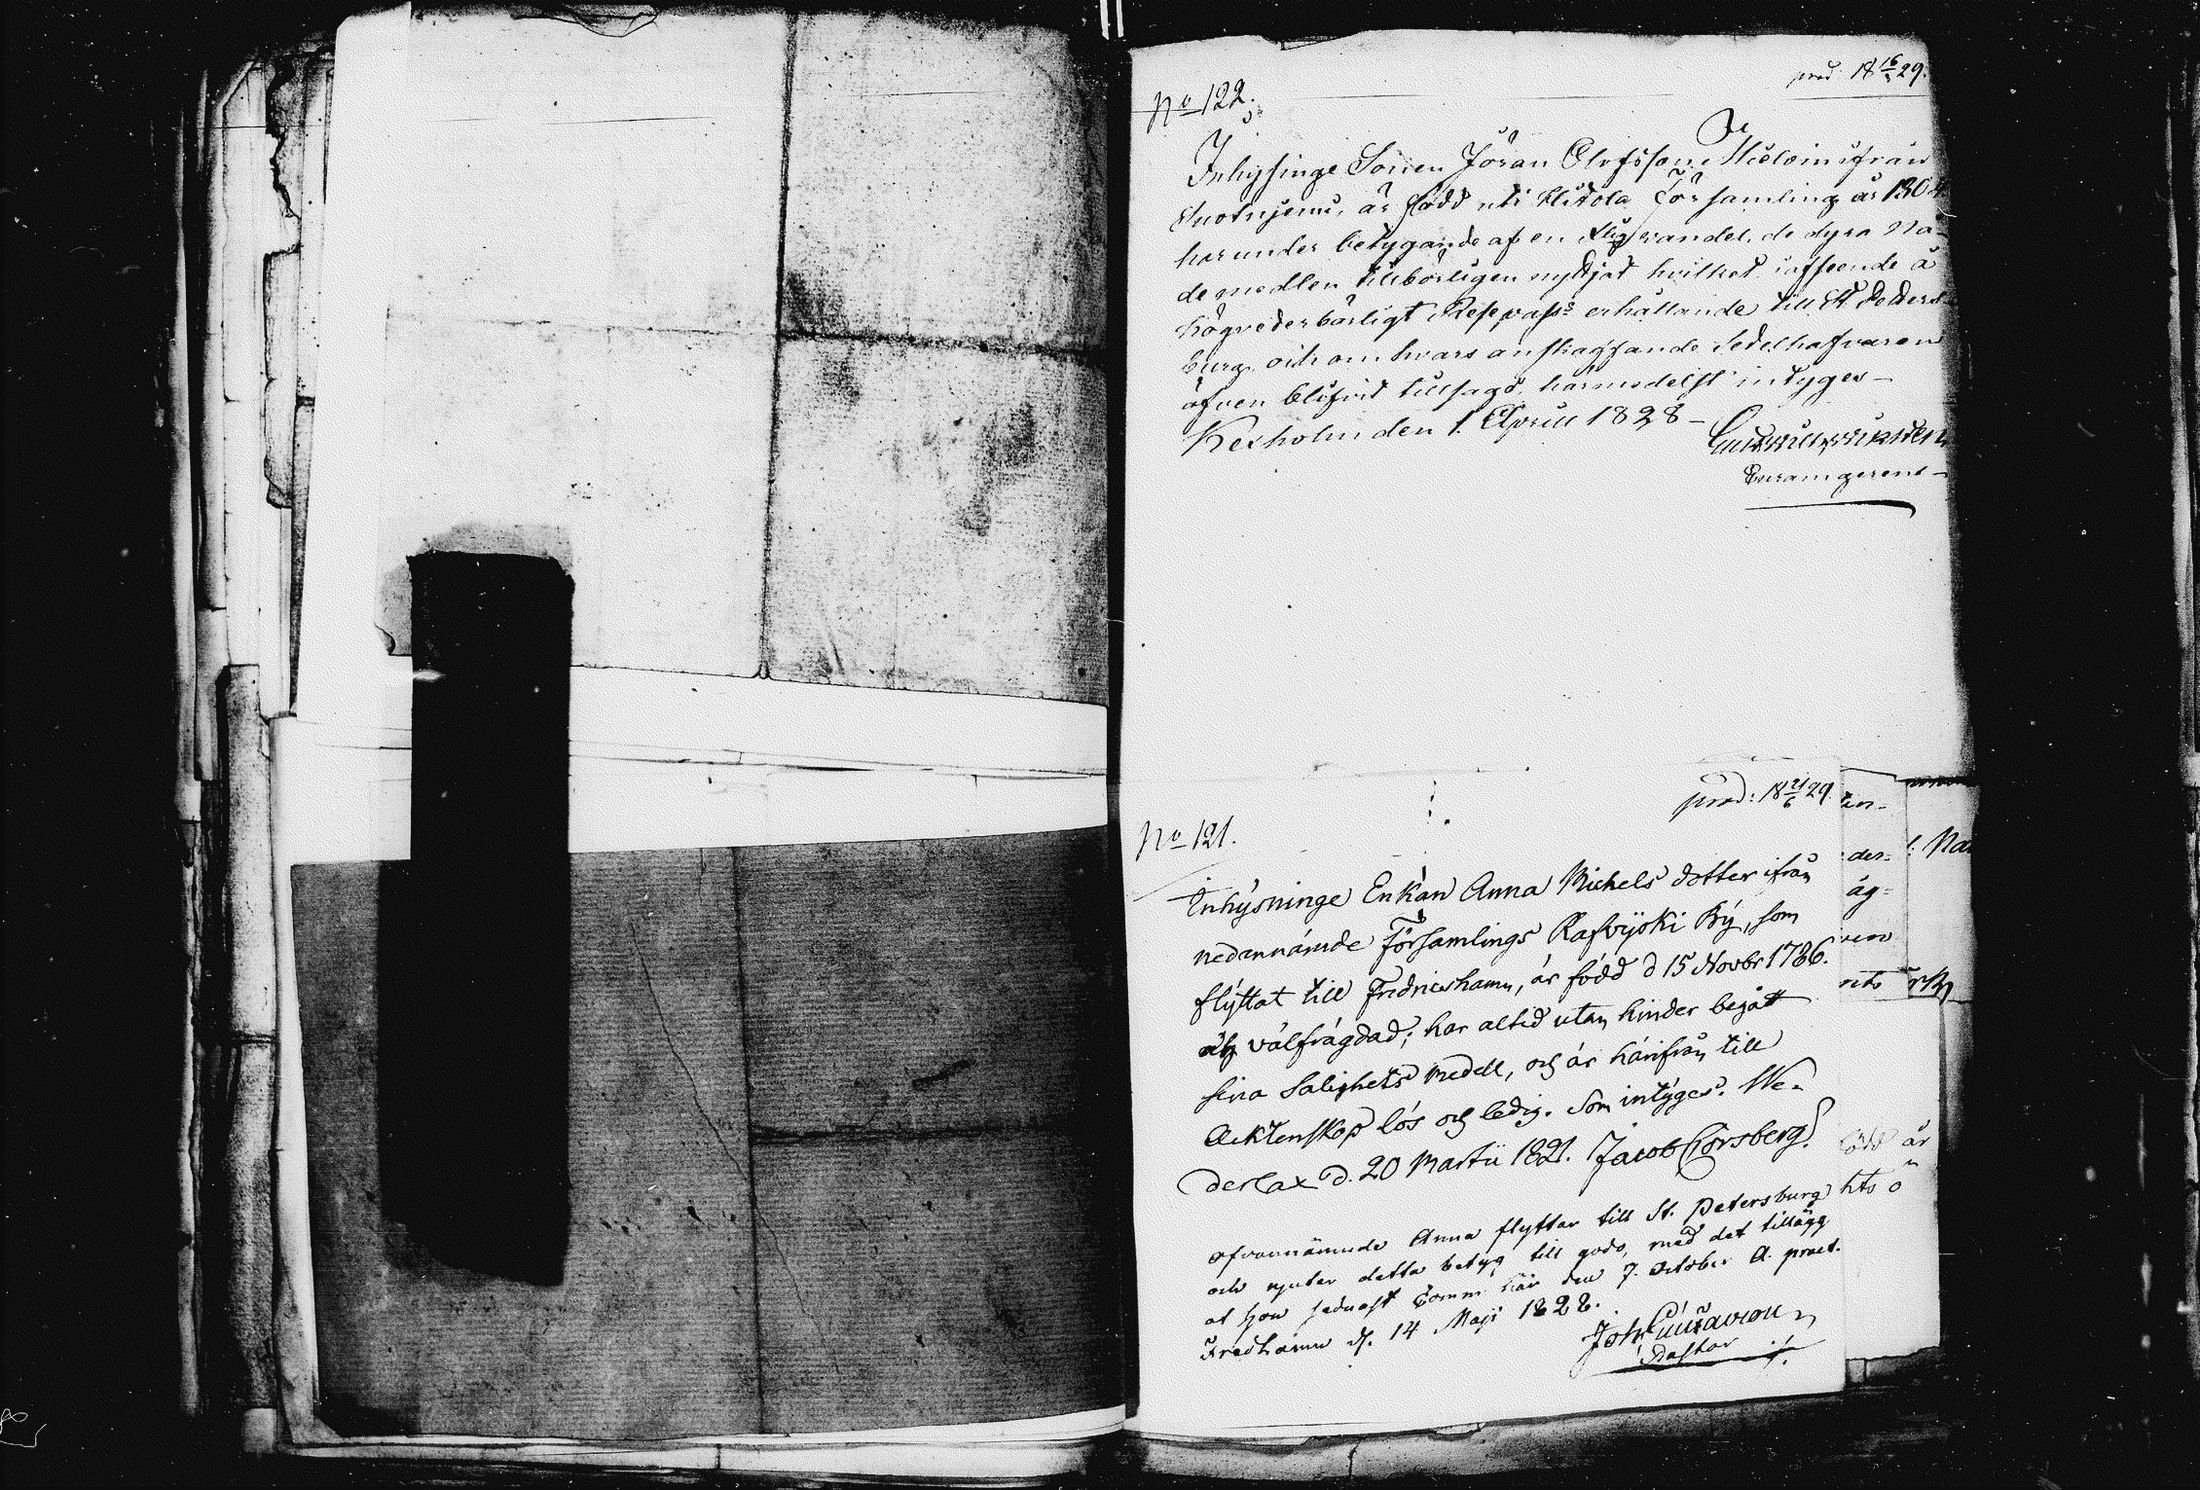 No 122.
prod: 18 16/5 29.
Inhysinge Sonen Jöran Olofsson ifrån
är född uti Hiitola Församling år 1804
har under betygande af en dygd vandel, de dyra Nå-
de medlen tillbörligen nyttjat hvilket i afseende å
högvederbörligt Respass erhållande till St. Peters-
burg, och om hvars anskaffande Sedelhafvaren
äfven blifvit tillsagd, härmedelst intyges –
Kexholm den 1. April 1828 –
Curam gerens –
prod: 18 21/6 29.
No 121.
Inhysninge Enkan Anna Michels dotter ifrån
nedannämde Församlings Rafvijoki Bÿ, som
flÿttat till Fredricshamn, är född d 15 Novbr 1786.
välfrägdad; har altid utan hinder begått
sina Salighets medell, och är härifrån till
Ecktenskap lös och ledig. Som intÿges. We-
derlax d. 20 Martii 1821. Jacob Forsberg.
Ofvannämnde Anna flyttar till St. Petersburg
och njuter detta betyg till godo, med det tillägg
at hon sednast Comm. här den 7. October A. praet.
Fredrhamn d. 14 Maji 1828.
Joh.
Pastor
ters-
der=
äg=
: Na
år
hts ö